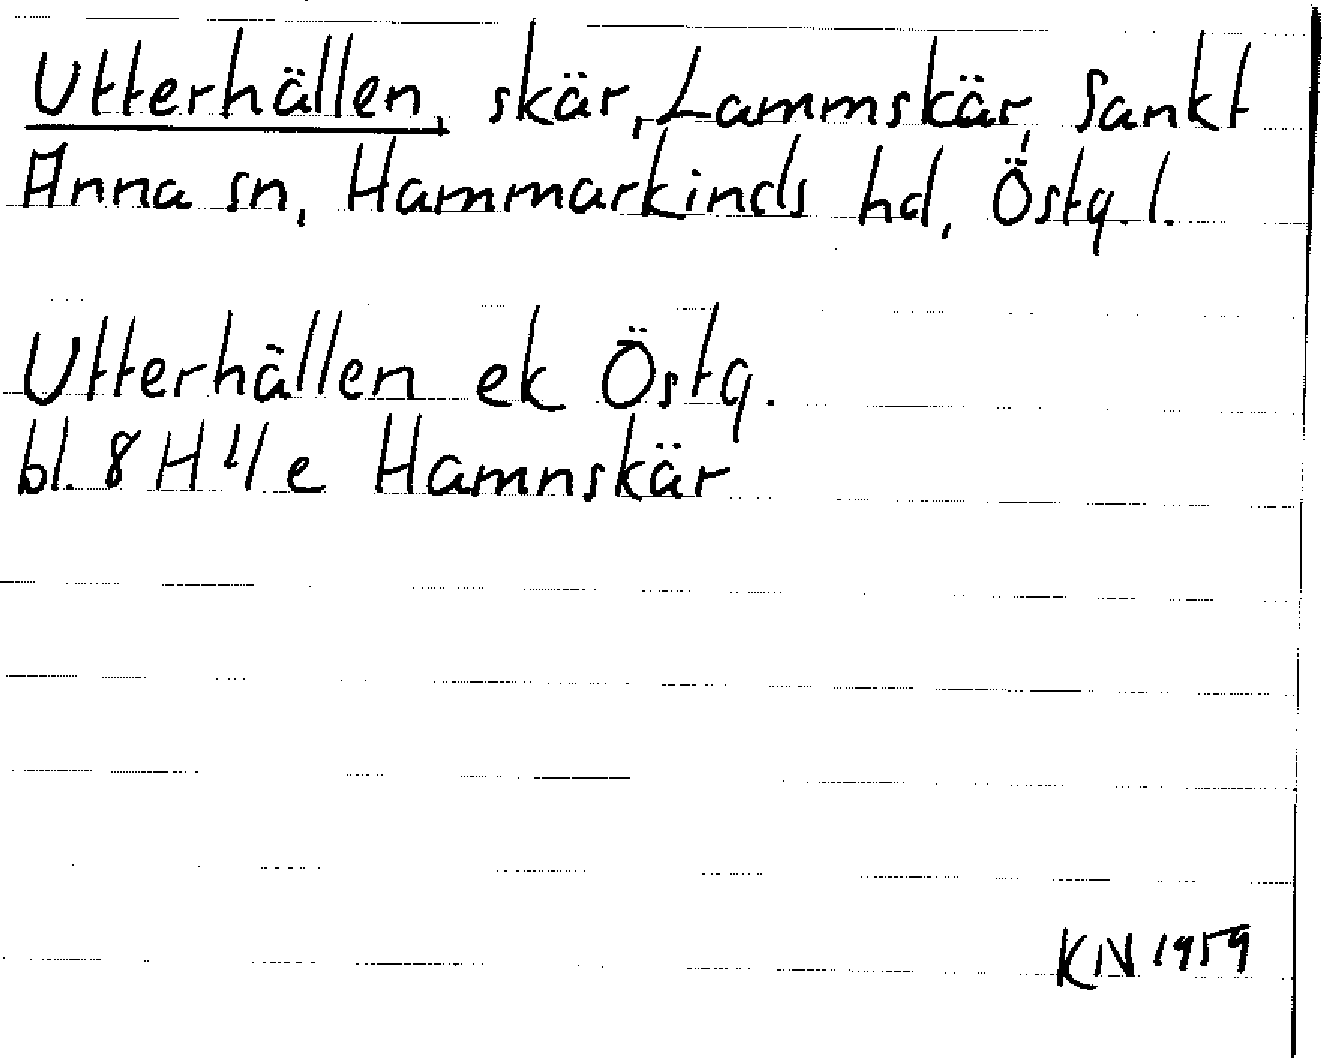 Utterhällen, skär, Lammskär, Sankt
Anna sn, Hammarkinds hd, Östg. l.
Utterhällen ek Östg.
bl. 8 H 1/e Hamnskär
KN 1959